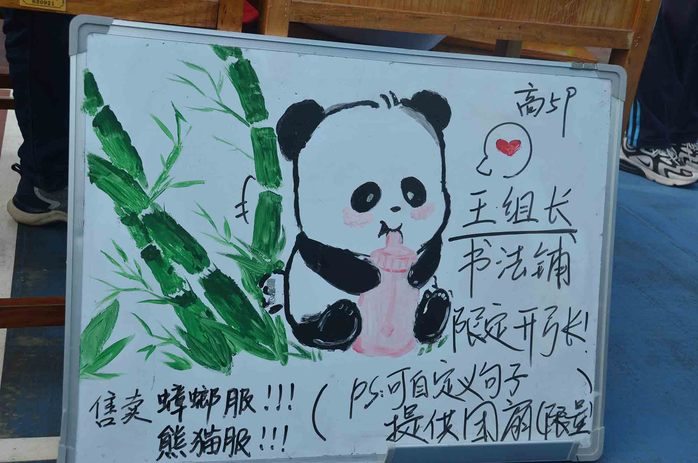 高5P
王组长
书法铺
限定开张!
售卖 蟑螂服!!!
熊猫服!!!
(PS:可自定义句子
提供团扇(限量)